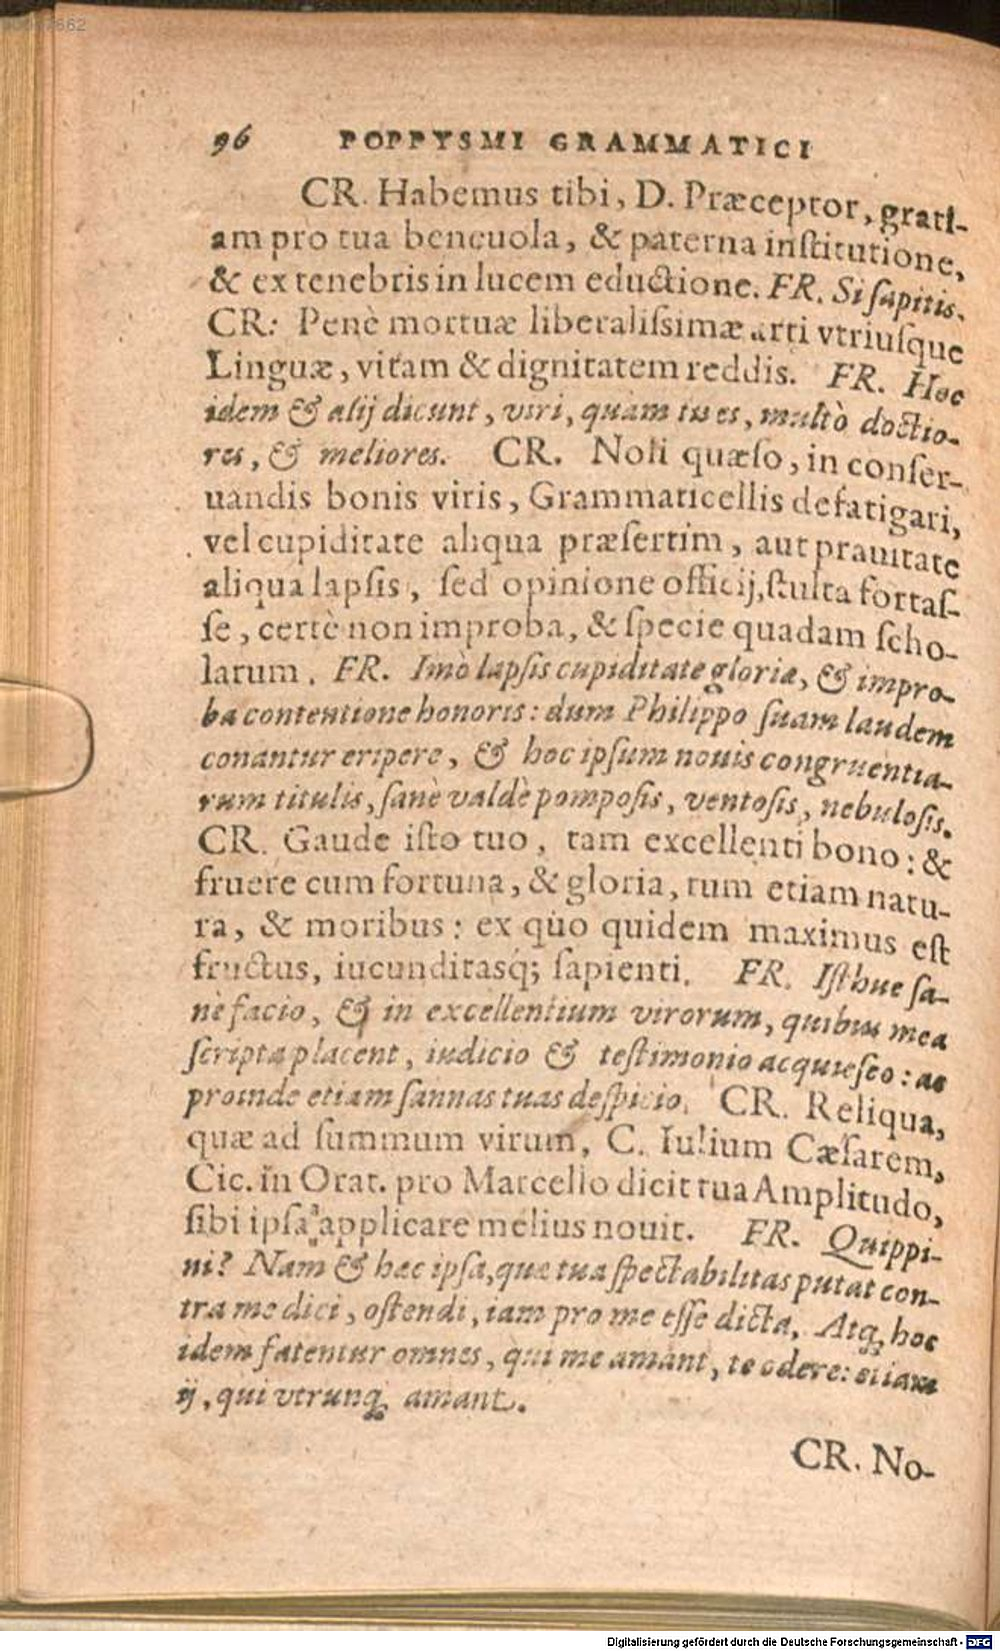 96 POPPYSMI GRAMMATICI
CR. Habemus tibi, D. Præceptor, grati-
am pro tua beneuola, & paterna inſtitutione,
& ex tenebris in lucem eductione. FR. Si ſapitis.
CR. Penè mortuæ liberaliſsimæ arti vtriuſque
Linguæ, vitam & dignitatem reddis. FR. Hoc
idem & alij dicunt, viri, quàm tu es, multò doctio-
res, & meliores. CR. Noli quæſo, in conſer-
uandis bonis viris, Grammaticellis defatigari,
vel cupiditate aliqua præſertim, aut prauitate
aliqua lapſis, ſed opinione officij, ſtulta fortaſ-
ſe, certè non improba, & ſpecie quadam ſcho-
larum. FR. Imò lapſis cupiditate gloriæ, & impro-
ba contentione honoris: dum Philippo ſuam laudem
conantur eripere, & hoc ipſum nouis congruentia-
rum titulis, ſanè valdè pompoſis, ventoſis, nebuloſis.
CR. Gaude iſto tuo, tam excellenti bono: &
fruere cum fortuna, & gloria, tum etiam natu-
ra, & moribus: ex quo quidem maximus eſt
fructus, iucunditasq; ſapienti. FR. Iſthuc ſa-
nè facio, & in excellentium virorum, quibus mea
ſcripta placent, iudicio & teſtimonio acquieſco: ac
proinde etiam ſannas tuas deſpicio. CR. Reliqua,
quæ ad ſummum virum, C. Iulium Cæſarem,
Cic. in Orat. pro Marcello dicit tua Amplitudo,
ſibi ipſa applicare melius nouit. FR. Quippi-
ni? Nam & hæc ipſa, quæ tua ſpectabilitas putat con-
tra me dici, oſtendi, iam pro me eſſe dicta. Atq; hoc
idem fatentur omnes, qui me amant, te odere: etiam
ij, qui vtrunq; amant.
CR. No-
Digitalisierung gefördert durch die Deutsche Forschungsgemeinschaft - DFG